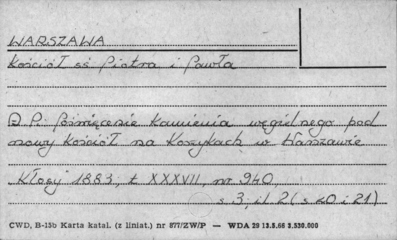 WARSZAWA
Kościół śś Piotra i Pawła
P: Poświęcenie kamienia węgielnego pod
nowy kościół na Koszykach w Warszawie
Kłosy 1883, t XXXVII, nr 940,
s. 3; il. 2 (s 20 i 21)
CWD, B-13b Karta katal. (z liniat.) nr 877/ZW/P — WDA 29 13.5.68 2.530.000